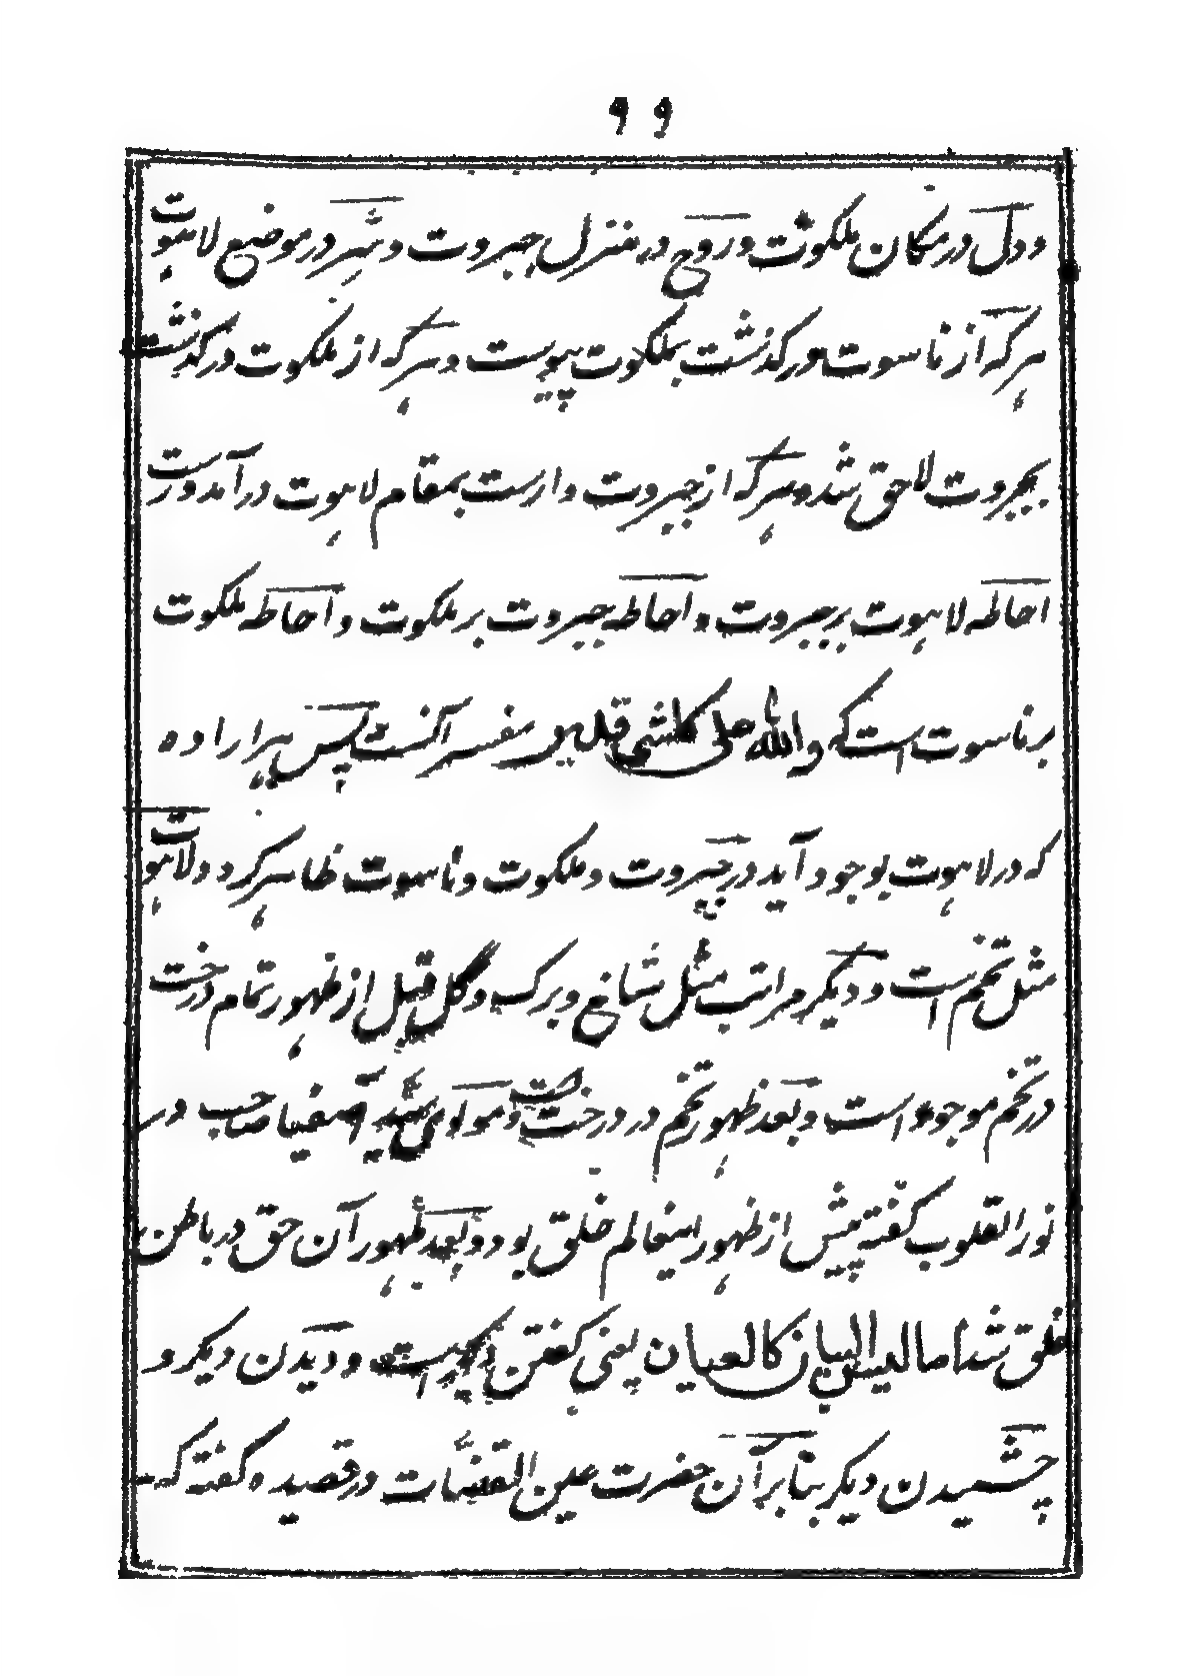 ۹۹
و دل در مکان ملکوت و روح در منزل جبروت و سّر در موضع لاهوت
هرکه از ناسوت در گذشت بملکوت پیوست و هرکه از ملکوت درگذشت
بجبروت لاحق شد و هرکه از جبروت وارست بمقام لاهوت درآمد و رست
احاطه لاهوت بر جبروت و احاطه جبروت بر ملکوت و احاطه ملکوت
بر ناسوت است که والله علی کلشی پس هر اراده
که در لاهوت بوجود آید در جبروت و ملکوت و ناسوت ظاهر گردد و لاهوت
مثل تخم است و دیگر مراتب مثل شاخ و برگ و گل قبل از ظهور تمام درخت
در تخم موجود است و بعد ظهور تخم در درخت و مولوی صاحب در
نور القلوب گفته پیش از ظهور اینعالم خلق بود و بعد ظهور آن حق در باطن
خلق شد اما لیس البیان کالعیان یعنی گفتن دیگر است و دیدن دیگر و
چشیدن دیگر بنا بر آن حضرت عین القضات در قصیده گفته که